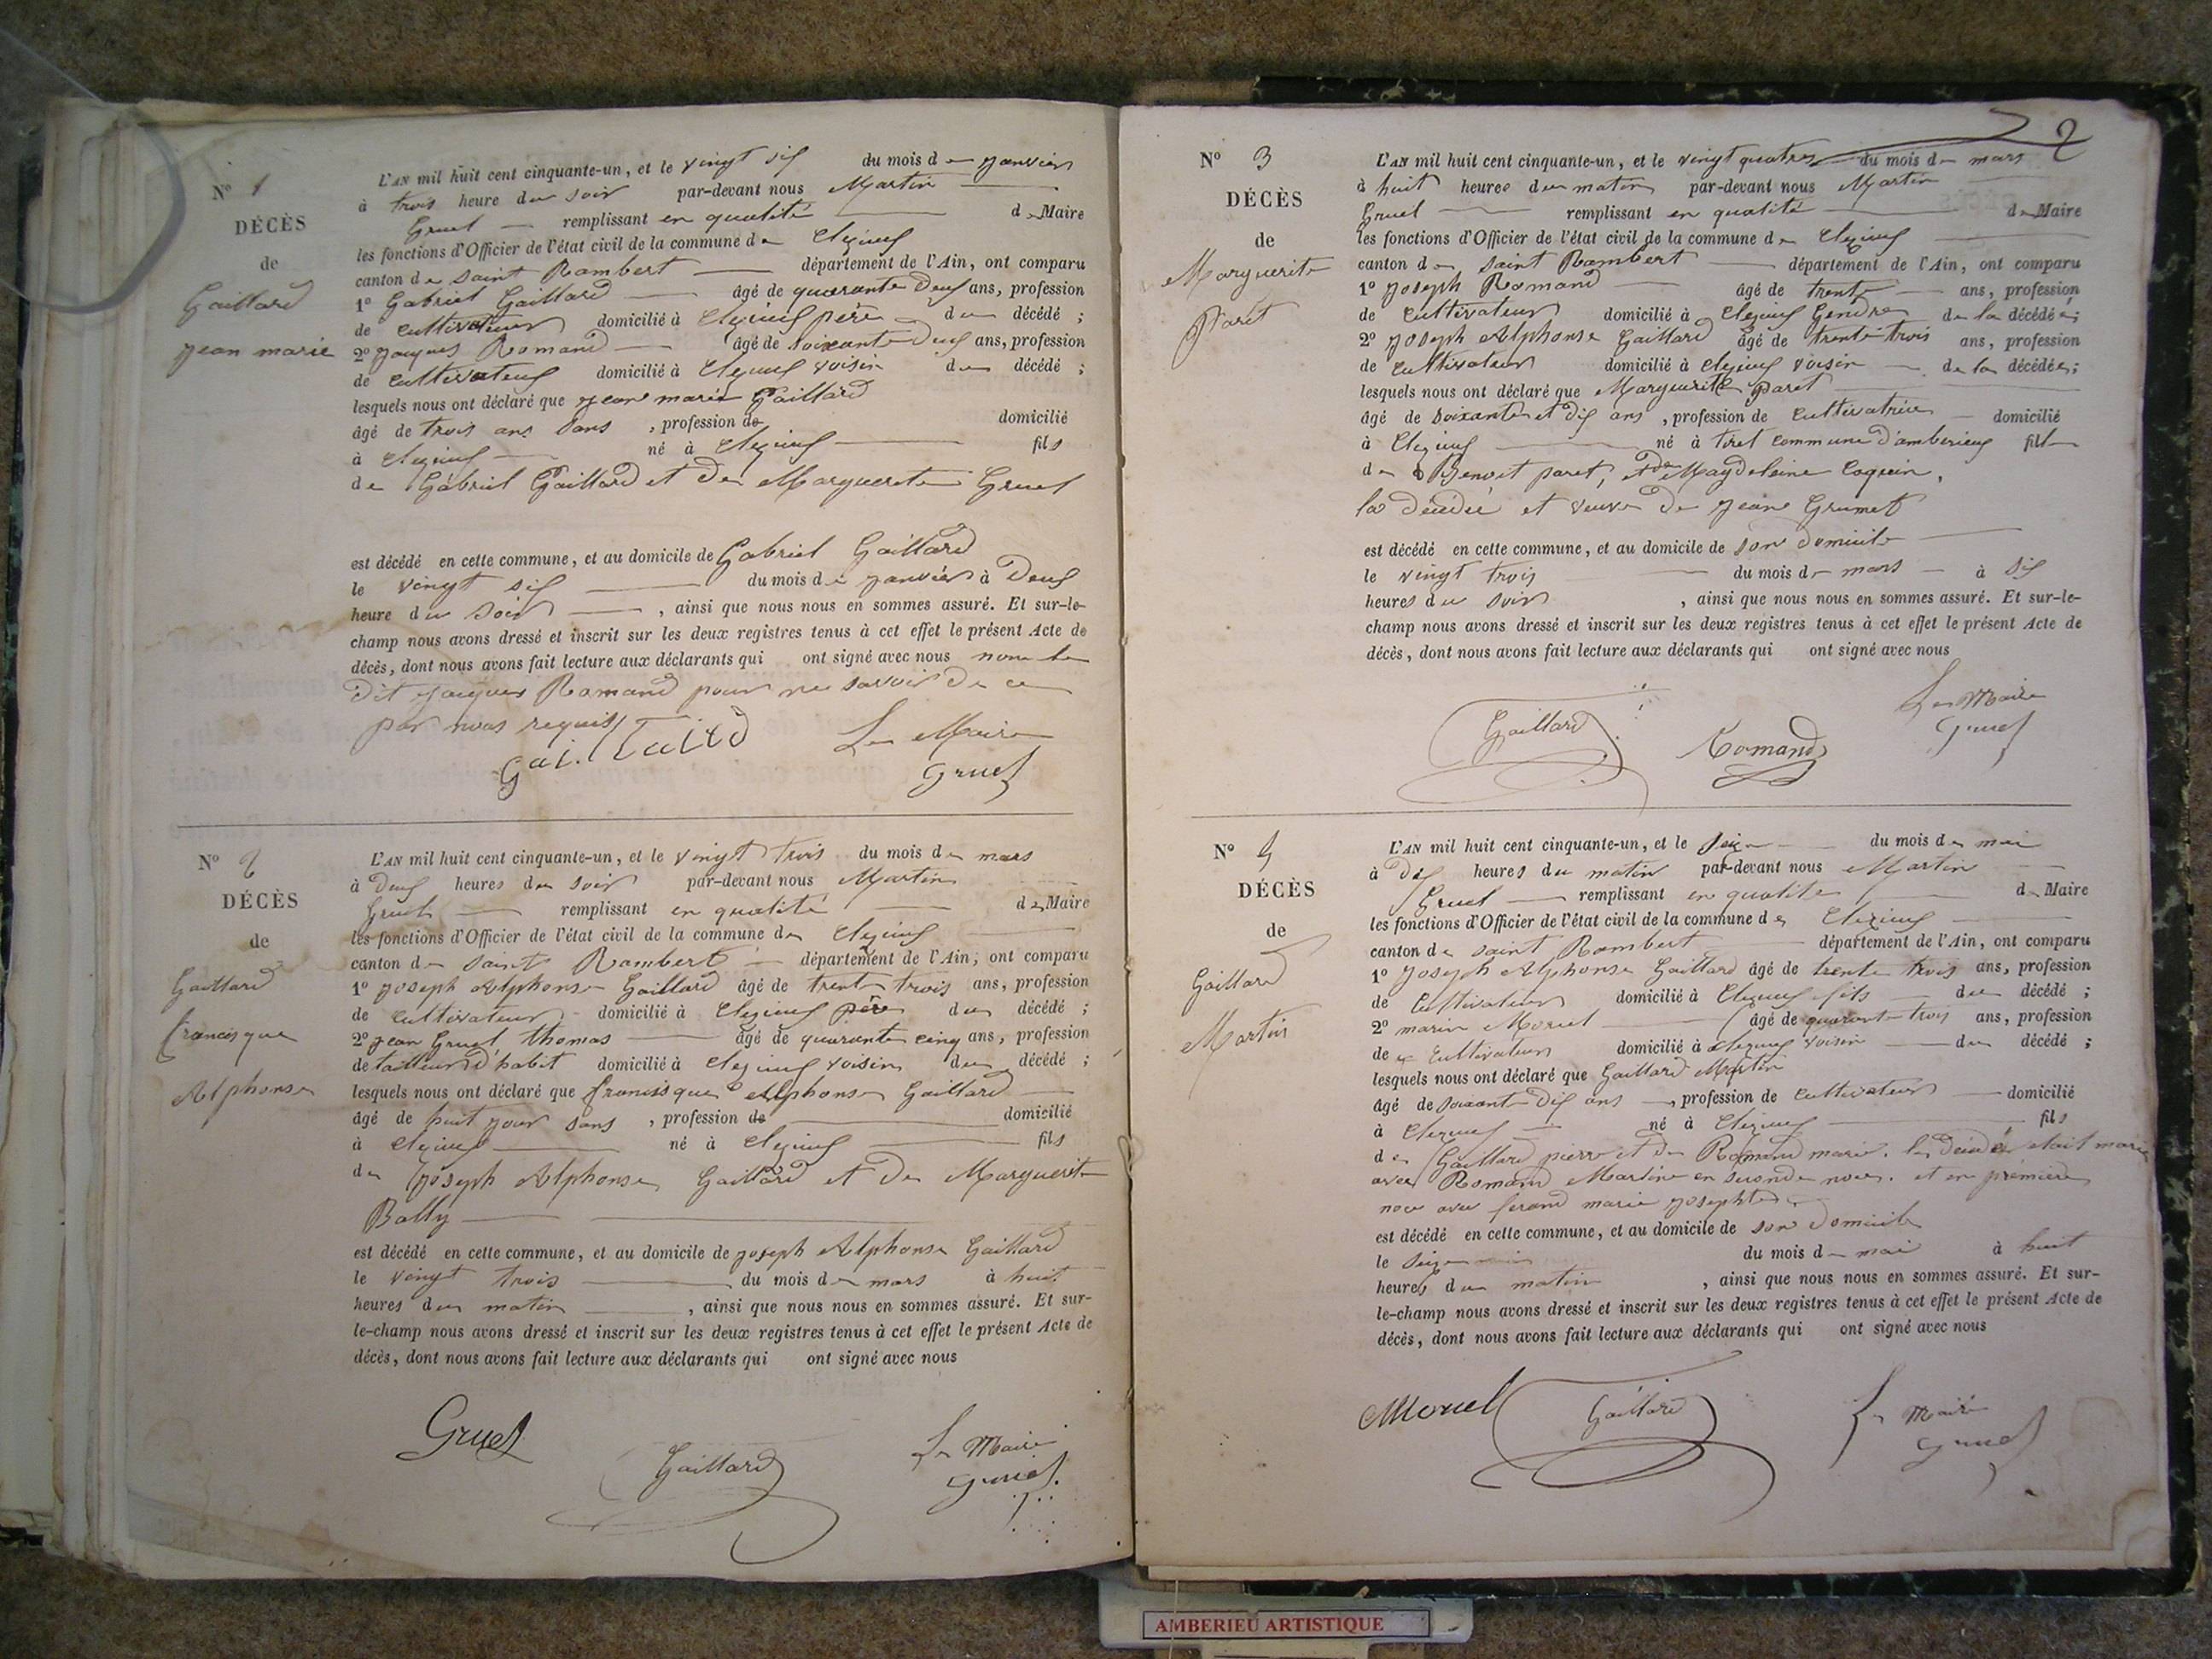 N° 1
DÉCÈS
de
Gaillard
jean marie
L'AN mil huit cent cinquante-un, et le vingt six du mois de janvier
à trois heure du soir par-devant nous Martin
Gruel remplissant en qualité de Maire
les fonctions d'Officier de l'état civil de la commune de Cleyzieu
canton de saint Rambert département de l'Ain, ont comparu
1° Gabriel Gaillard âgé de quarante deux ans, profession
de cultivateur domicilié à Cleyzieu père du décédé ;
2° jacques Romand âgé de soixante deux ans, profession
de cultivateur domicilié à Cleyzieu voisin du décédé ;
lesquels nous ont déclaré que jean marie Gaillard
âgé de trois ans sans , profession de domicilié
à Cleyzieu né à Cleyzieu fils
de Gabriel Gaillard et de Marguerite Gruel
est décédé en cette commune, et au domicile de Gabriel Gaillard
le vingt six du mois de janvier à deux
heure du soir , ainsi que nous nous en sommes assuré. Et sur-le-
champ nous avons dressé et inscrit sur les deux registres tenus à cet effet le présent Acte de
décès, dont nous avons fait lecture aux déclarants qui ont signé avec nous non le
dit jacques Romand pour ne savoir de ce
par nous requis
Gaillard Le Maire
Gruel
N° 2
DÉCÈS
de
Gaillard
francisque
Alphonse
L'AN mil huit cent cinquante-un, et le vingt trois du mois de mars
à deux heures du soir par-devant nous Martin
Gruel remplissant en qualité de Maire
les fonctions d'Officier de l'état civil de la commune de Cleyzieu
canton de saint Rambert département de l'Ain, ont comparu
1° joseph Alphonse Gaillard âgé de trente trois ans, profession
de cultivateur domicilié à Cleyzieu père du décédé ;
2° jean Gruel thomas âgé de quarante cinq ans, profession
de tailleur d'habit domicilié à Cleyzieu voisin du décédé ;
lesquels nous ont déclaré que francisque Alphonse Gaillard
âgé de huit jour sans , profession de domicilié
à Cleyzieu né à Cleyzieu fils
de joseph Alphonse Gaillard et de Marguerite
Bally
est décédé en cette commune, et au domicile de joseph Alphonse Gaillard
le vingt trois du mois de mars à huit
heures du matin , ainsi que nous nous en sommes assuré. Et sur-
le-champ nous avons dressé et inscrit sur les deux registres tenus à cet effet le présent Acte de
décès, dont nous avons fait lecture aux déclarants qui ont signé avec nous
Gruel Gaillard Le Maire
Gruel
2
N° 3
DÉCÈS
de
Marguerite
Paret
L'AN mil huit cent cinquante-un, et le vingt quatre du mois de mars
à huit heures du matin par-devant nous Martin
Gruel remplissant en qualité de Maire
les fonctions d'Officier de l'état civil de la commune de Cleyzieu
canton de saint Rambert département de l'Ain, ont comparu
1° joseph Romand âgé de trente ans, profession
de cultivateur domicilié à Cleyzieu Gendre de la décédée ;
2° joseph Alphonse Gaillard âgé de trente trois ans, profession
de cultivateur domicilié à Cleyzieu voisin de la décédée ;
lesquels nous ont déclaré que Marguerite Paret
âgé de soixante et dix ans , profession de cultivatrice domicilié
à Cleyzieu né à tiret commune d'amberieux fille
de Benoit paret, et de Magdeleine Coquin,
la décédée et veuve de jean Grumet
est décédé en cette commune, et au domicile de son domicile
le vingt trois du mois de mars à six
heures du soir , ainsi que nous nous en sommes assuré. Et sur-le-
champ nous avons dressé et inscrit sur les deux registres tenus à cet effet le présent Acte de
décès, dont nous avons fait lecture aux déclarants qui ont signé avec nous
Gaillard Romand Le Maire
Gruel
N° 4
DÉCÈS
de
Gaillard
Martin
L'AN mil huit cent cinquante-un, et le seize du mois de mai
à dix heures du matin par-devant nous Martin
Gruel remplissant en qualité de Maire
les fonctions d'Officier de l'état civil de la commune de Cleyzieu
canton de saint Rambert département de l'Ain, ont comparu
1° joseph Alphonse Gaillard âgé de trente trois ans, profession
de cultivateur domicilié à Cleyzieu fils du décédé ;
2° marin Moruel âgé de quarante trois ans, profession
de cultivateur domicilié à Cleyzieu voisin du décédé ;
lesquels nous ont déclaré que Gaillard Martin
âgé de soixante dix ans , profession de cultivateur domicilié
à Cleyzieu né à Cleyzieu fils
de Gaillard pierre et de Romand marie. le décédé était marié
avec Romand Martine en seconde noces. et en premiere
noce avec ferand marie josephte
est décédé en cette commune, et au domicile de son domicile
le seize du mois de mai à huit
heures du matin , ainsi que nous nous en sommes assuré. Et sur-
le-champ nous avons dressé et inscrit sur les deux registres tenus à cet effet le présent Acte de
décès, dont nous avons fait lecture aux déclarants qui ont signé avec nous
Moruel Gaillard Le Maire
Gruel
AMBERIEU ARTISTIQUE